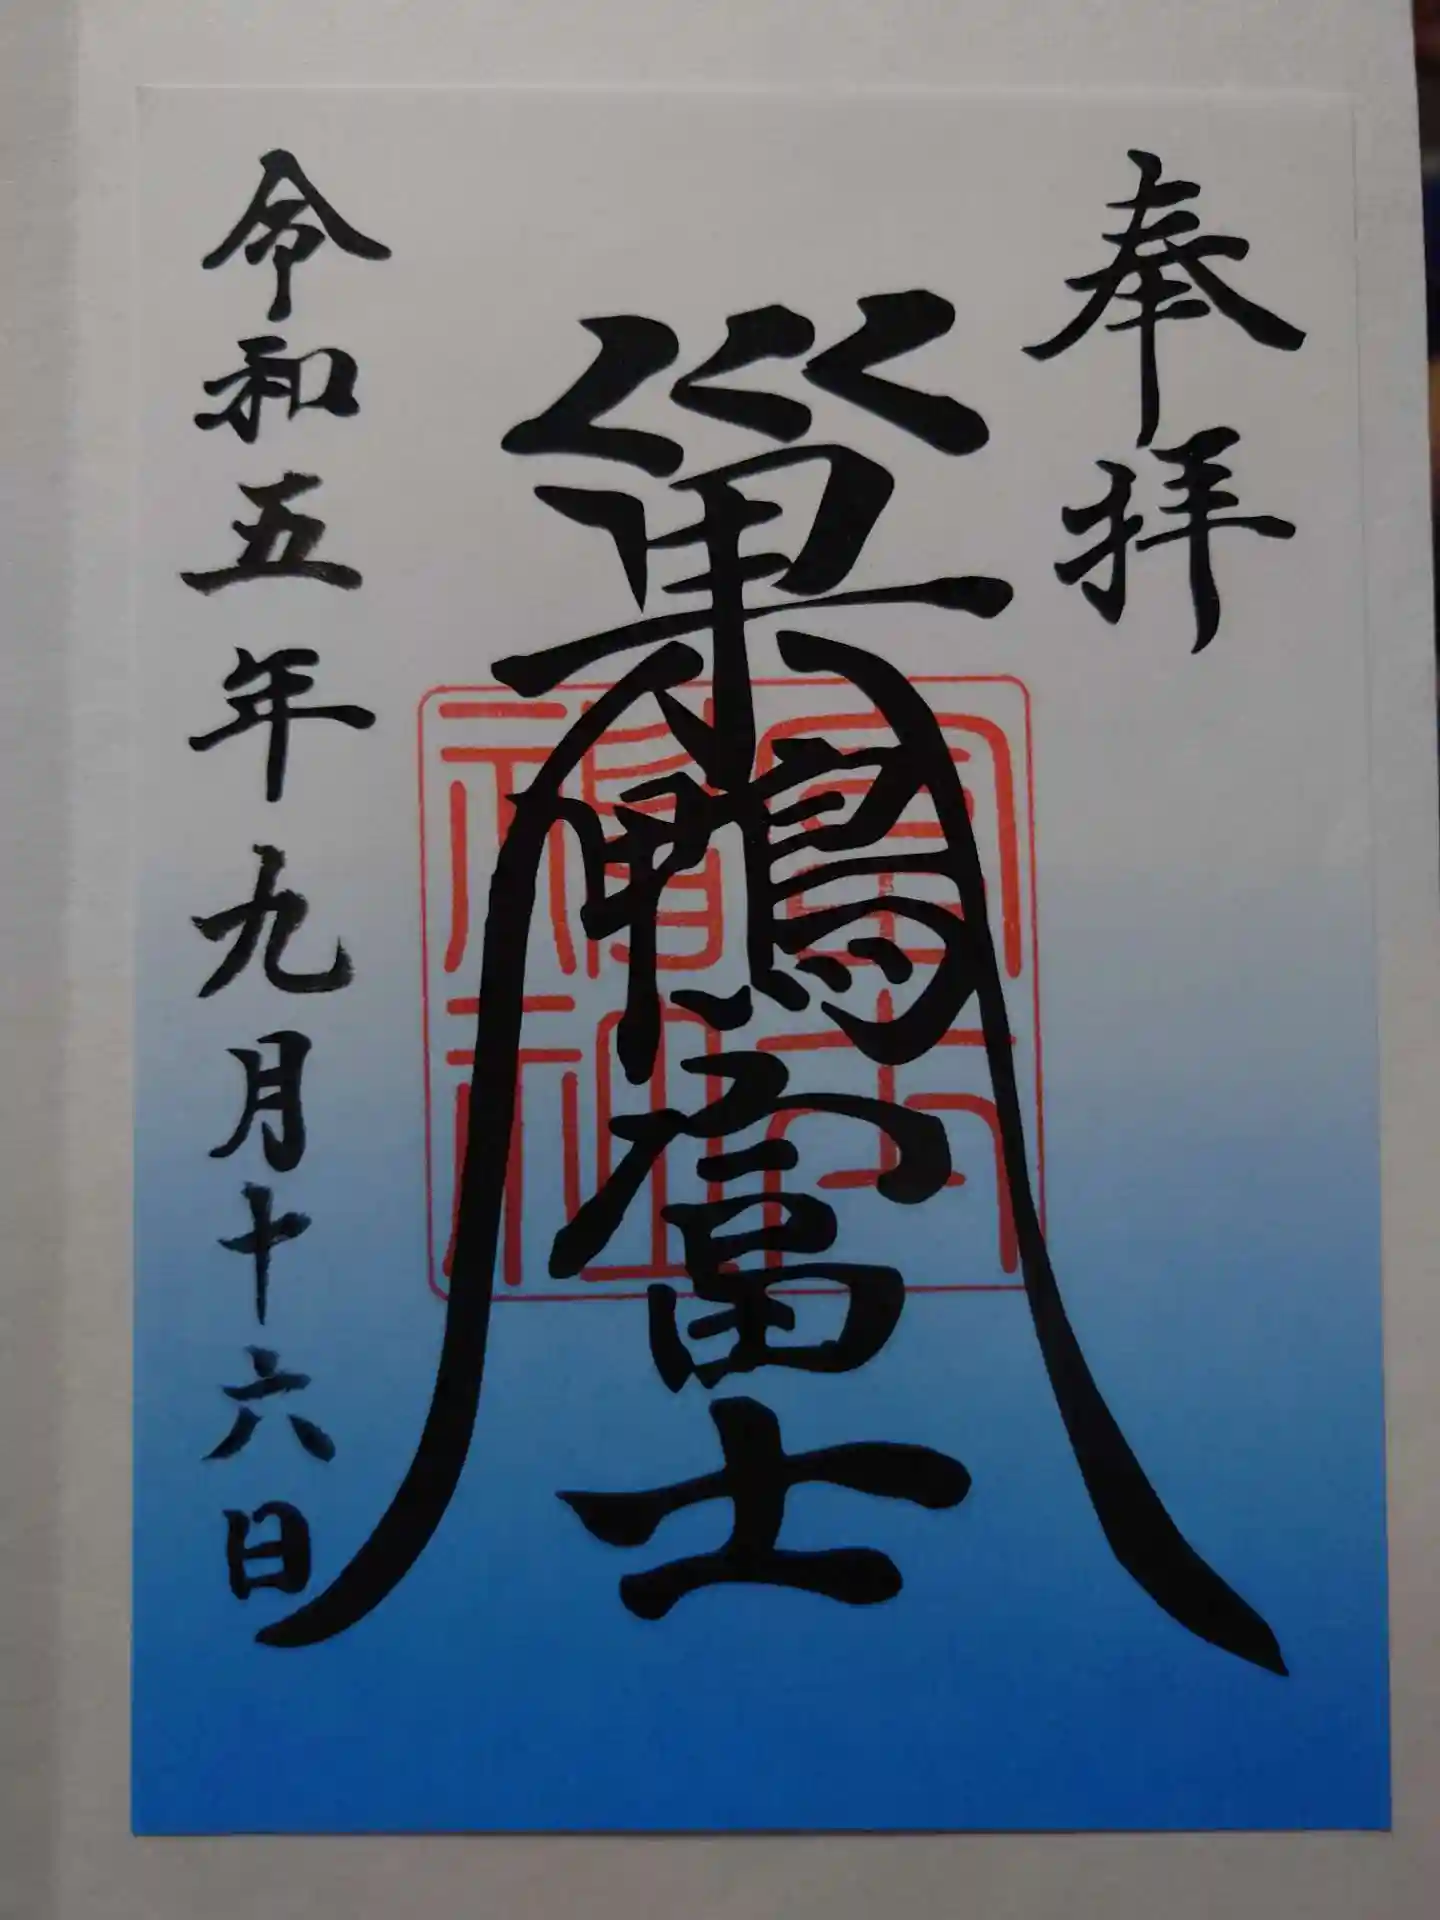 奉拝
巢鴨富士
令和五年九月十六日